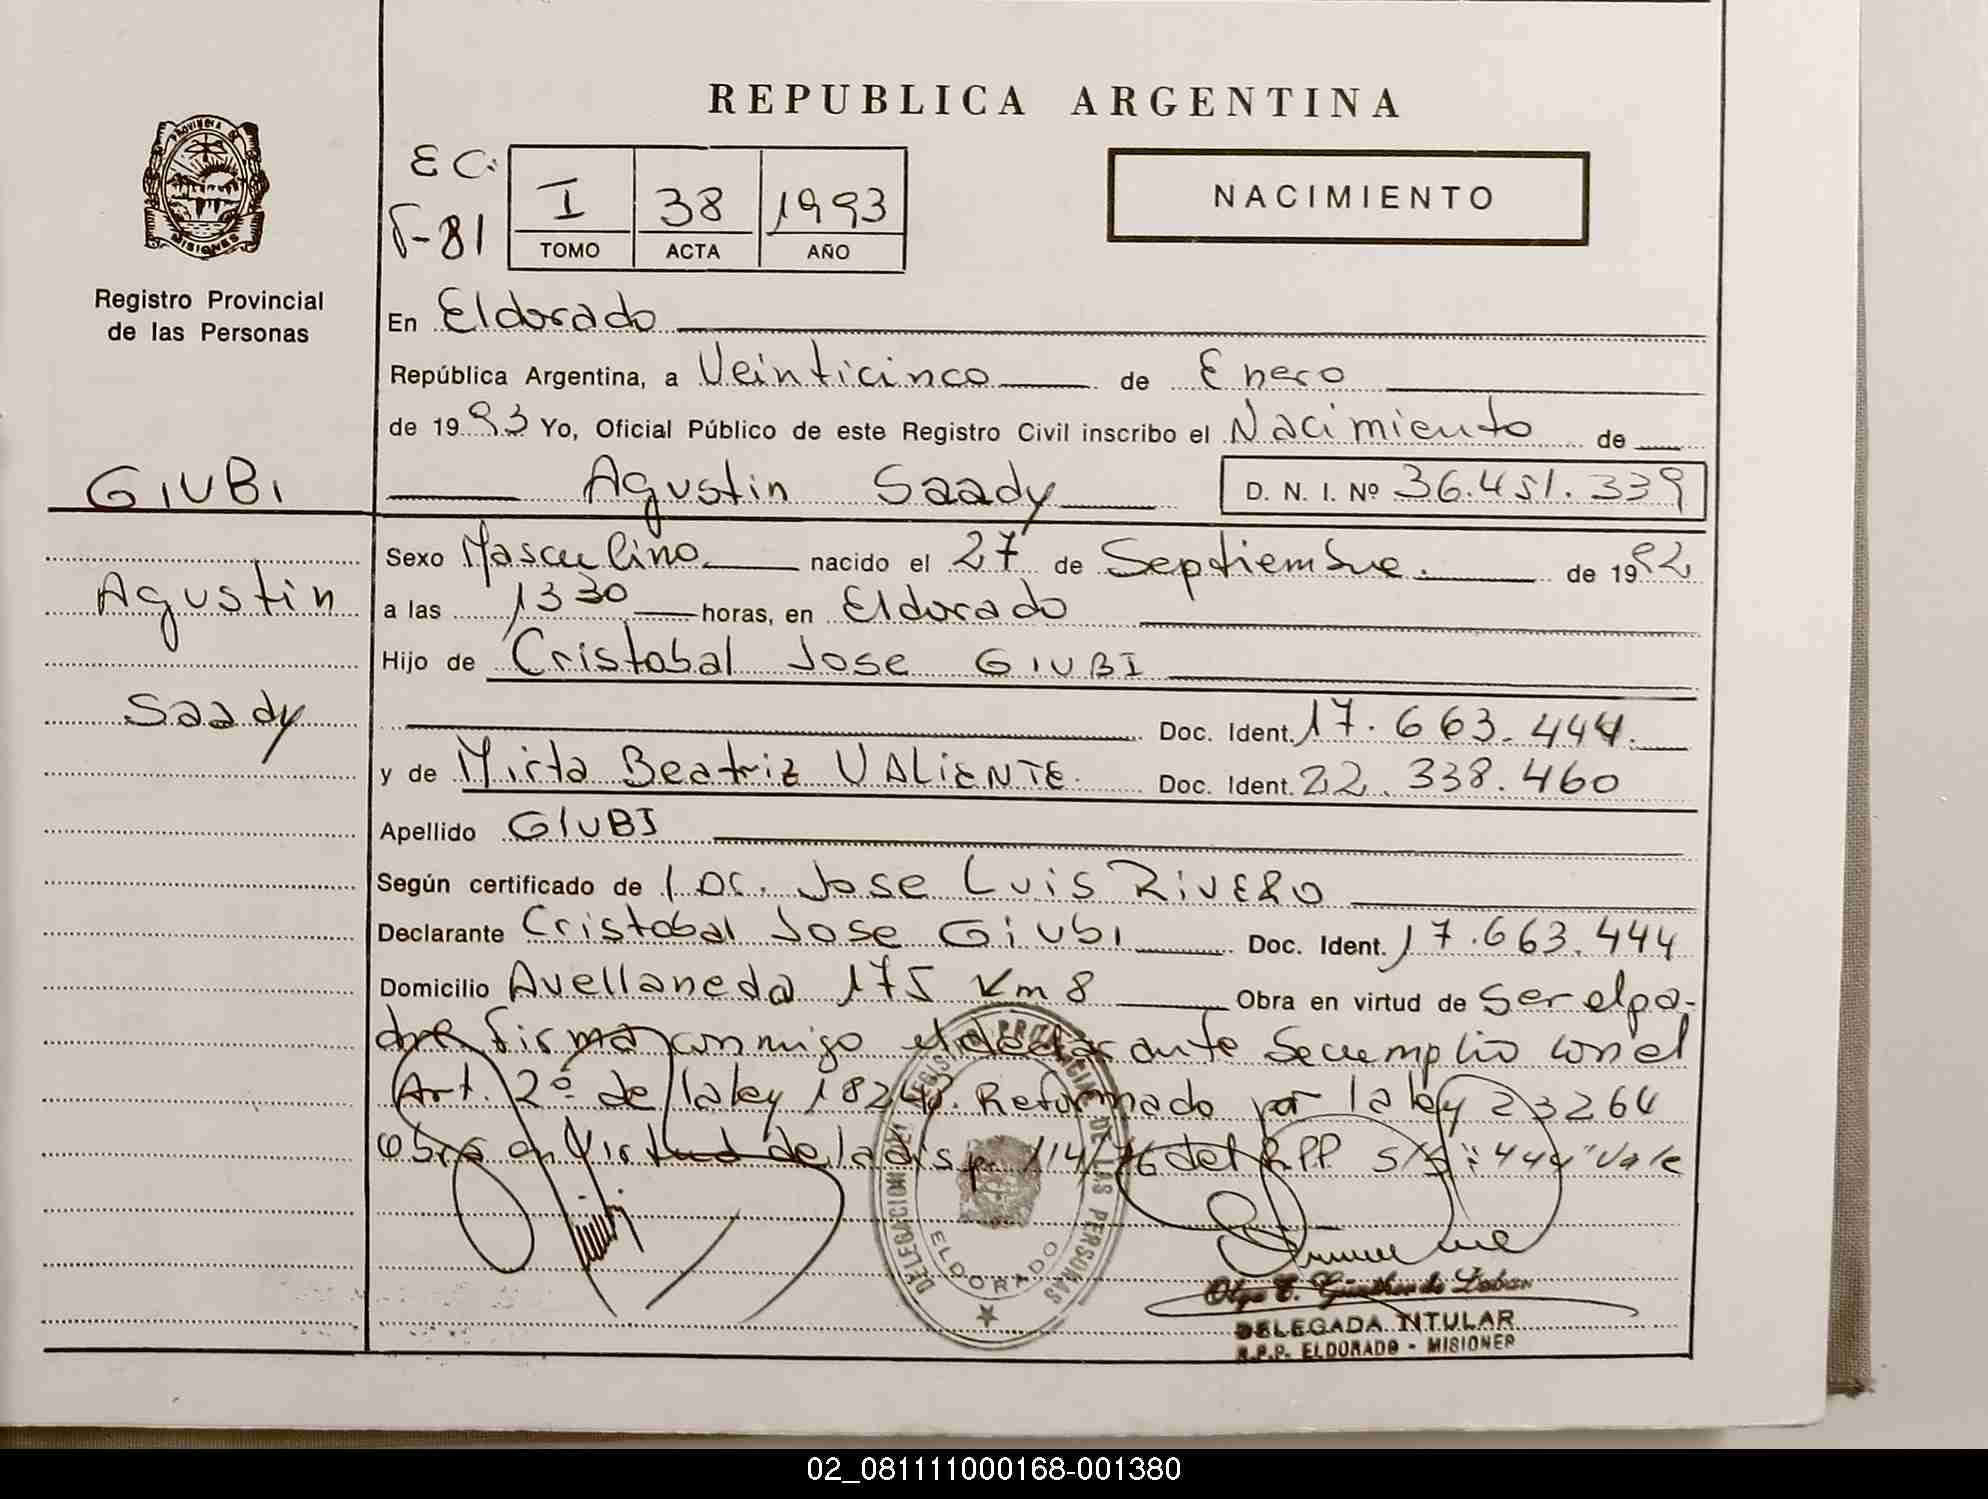 REPUBLICA ARGENTINA
PROVINCIA DE
MISIONES
Registro Provincial
de las Personas
EC.
F-81
I 38 1993
TOMO ACTA AÑO
NACIMIENTO
En Eldorado
República Argentina, a Veinticinco de Enero
de 1993 Yo, Oficial Público de este Registro Civil inscribo el Nacimiento de
GIUBI
Agustin Saady D. N. I. Nº 36.451.339
Agustin
Saady
Sexo Masculino nacido el 27 de Septiembre. de 1992
a las 13 30 horas, en Eldorado
Hijo de Cristobal Jose GIUBI
Doc. Ident. 17.663.444.
y de Mirta Beatriz VALIENTE. Doc. Ident. 22.338.460
Apellido GIUBI
Según certificado de Dr. Jose Luis RIVERO
Declarante Cristobal Jose Giubi Doc. Ident. 17.663.444
Domicilio Avellaneda 175 Km 8 Obra en virtud de ser el pa-
dre firma conmigo el declarante Se cumplio con el
Art. 2º de la ley 18248. Reformado por la ley 23264
obra en Virtud de la disp. 114/76 del RPP s/b: "444" Vale
DELEGACION REGISTRO PROVINCIAL DE LAS PERSONAS
ELDORADO
Olga E. Günther de Laban
DELEGADA TITULAR
R.P.P. ELDORADO - MISIONES
02_081111000168-001380